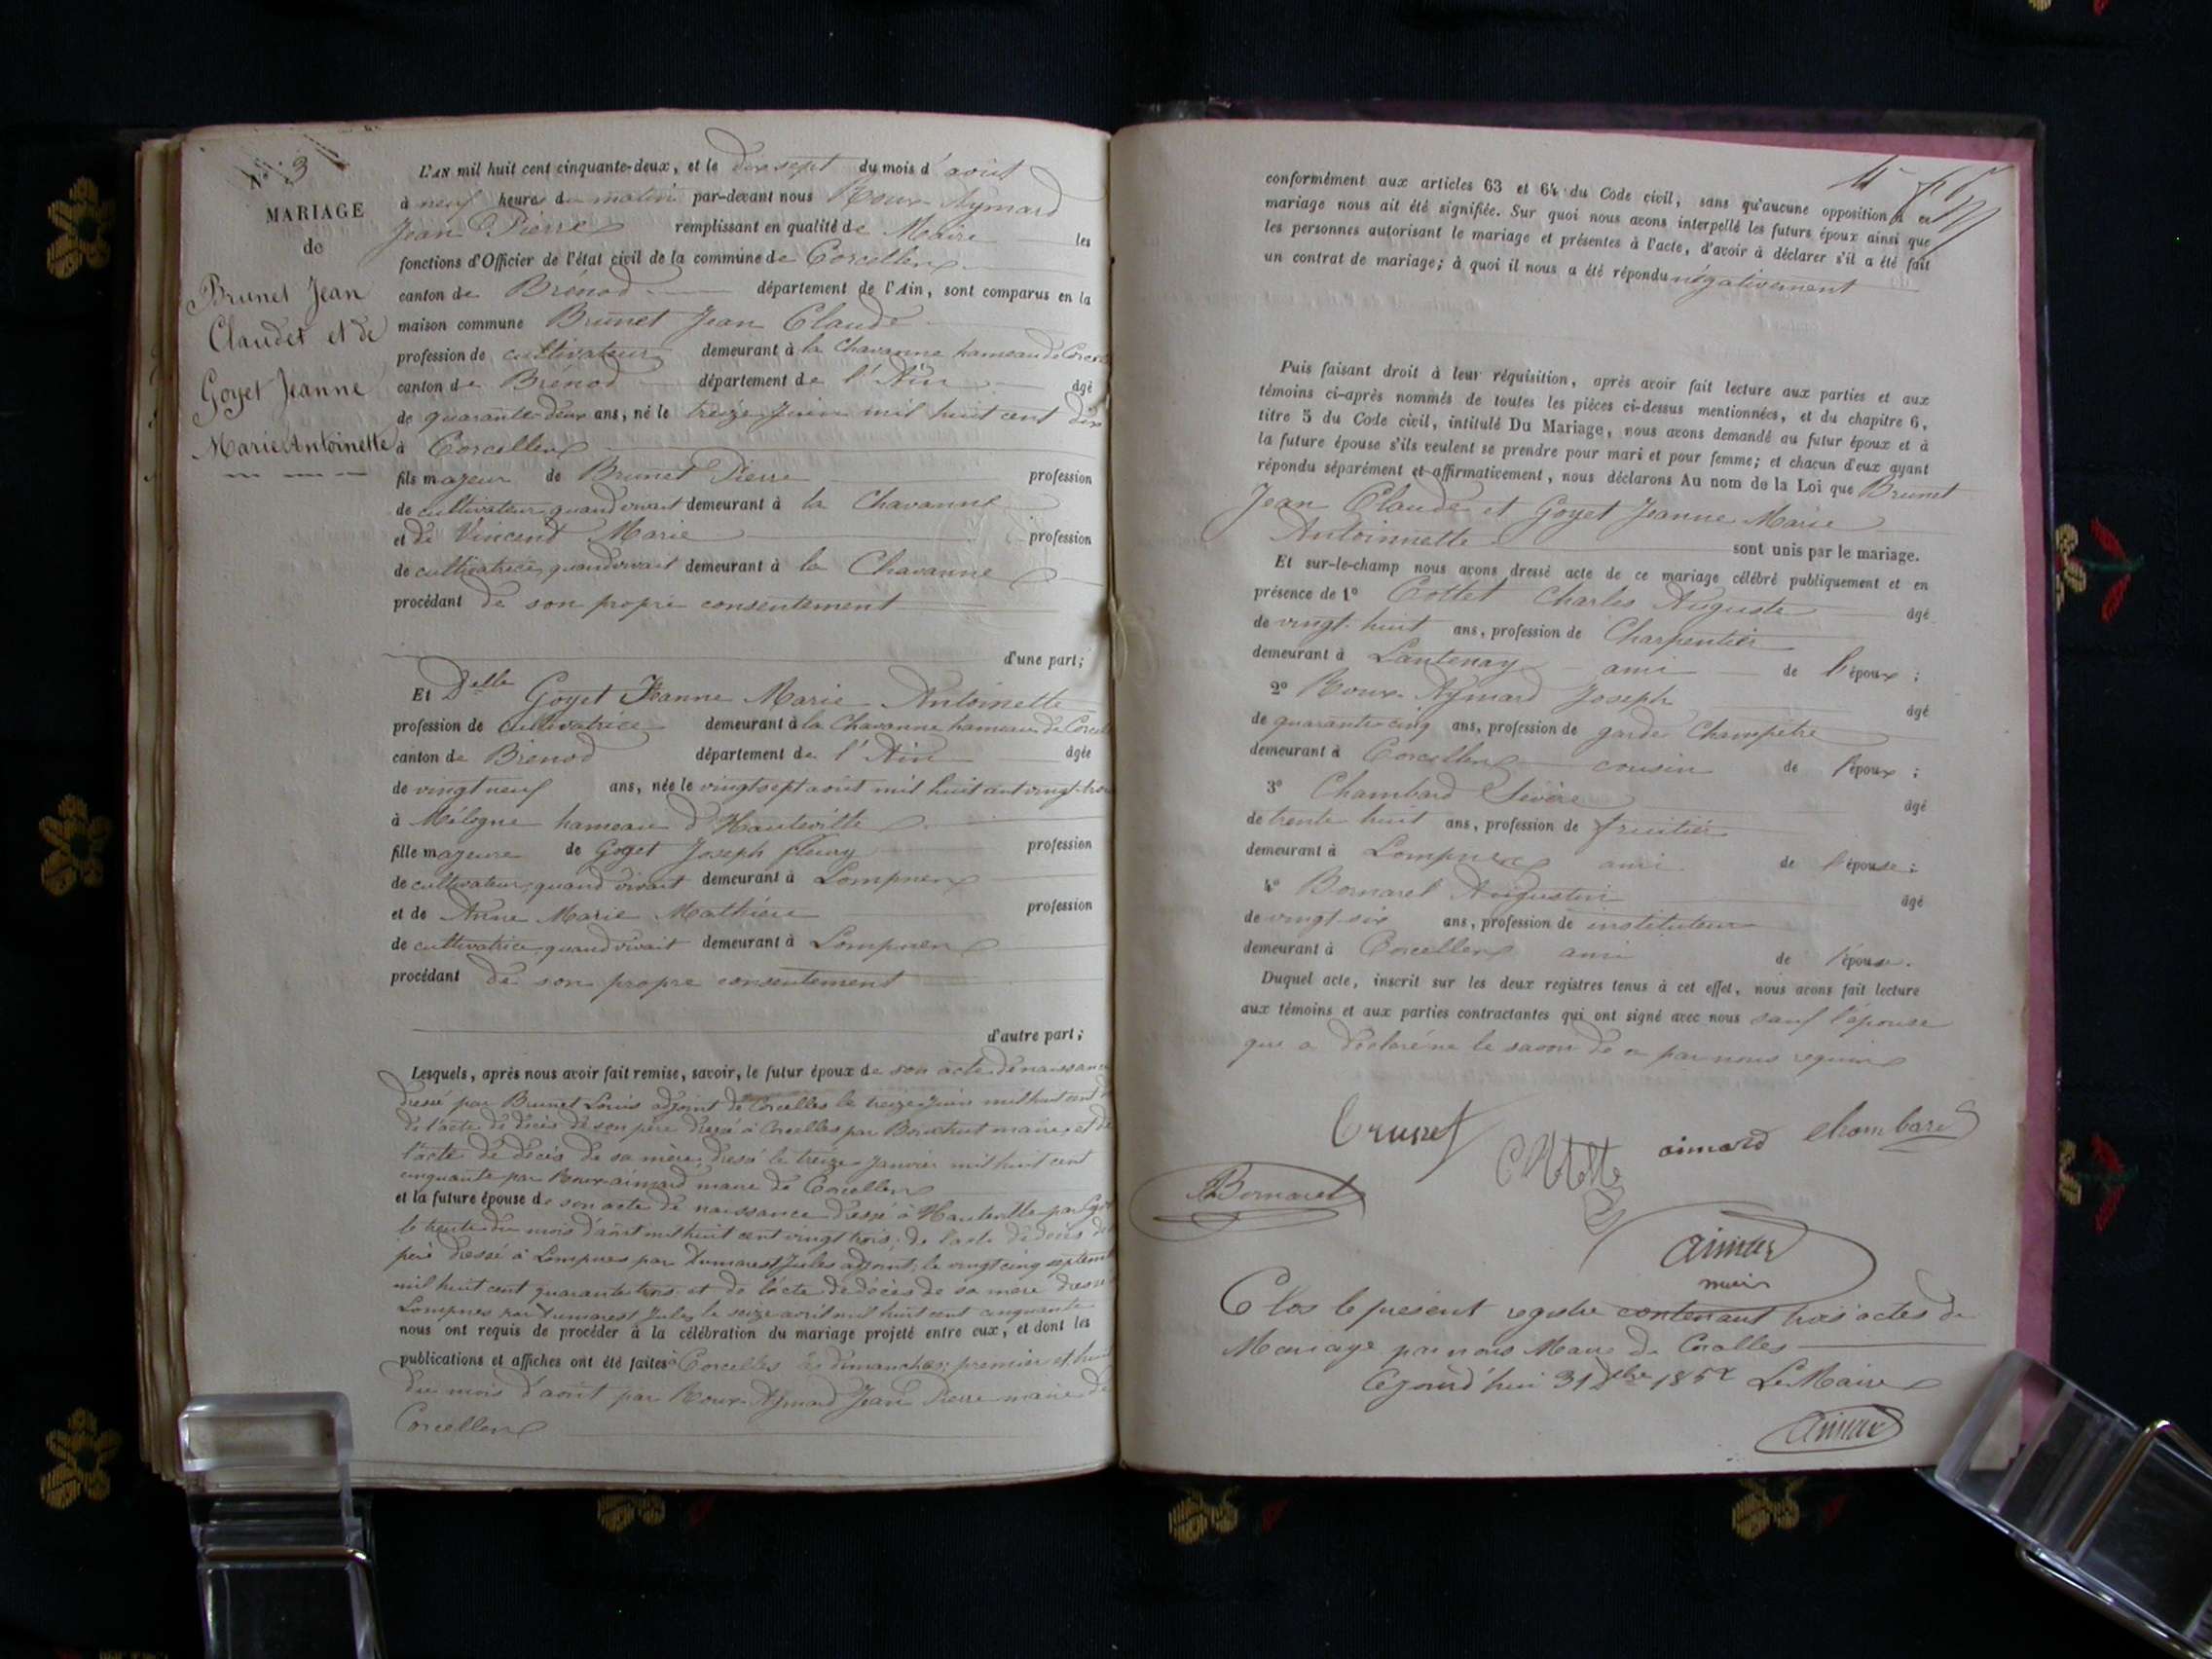 N° 3
MARIAGE
de
Brunet Jean
Claudet et de
Goyet Jeanne
Marie Antoinette
L'AN mil huit cent cinquante-deux, et le dix sept du mois d'août
à neuf heures du matin par-devant nous Roux Aymard
Jean Pierre remplissant en qualité de Maire les
fonctions d'Officier de l'état civil de la commune de Corcelles
canton de Brénod département de l'Ain, sont comparus en la
maison commune Brunet Jean Claude
profession de cultivateur demeurant à la Chavanne hameau de
canton de Brénod département de l'Ain âgé
de quarante deux ans, né le treize Juin mil huit cent dix
à Corcelles
fils majeur de Brunet Pierre profession
de cultivateur quand vivait demeurant à la Chavanne
et de Vincend Marie profession
de cultivatrice, quand vivait demeurant à la Chavanne
procédant de son propre consentement
d'une part;
Et Delle Goyet Jeanne Marie Antoinette
profession de cultivatrice demeurant à la Chavanne hameau de
canton de Brénod département de l'Ain âgée
de vingt neuf ans, née le vingt sept août mil huit cent vingt
à Mélogne hameau d'Hauteville
fille majeure de Goyet Joseph fleury profession
de cultivateur, quand vivait demeurant à Lompnes
et de Anne Marie Mathieu profession
de cultivatrice quand vivait demeurant à Lompnes
procédant de son propre consentement
d'autre part;
Lesquels, après nous avoir fait remise, savoir, le futur époux de son acte de naissance
dressé par Brunet Louis adjoint de Corcelles le treize Juin mil huit cent
de l'acte de décès de son père dressé à Corcelles par maire, et de
l'acte de décès de sa mère, dressé le treize Janvier mil huit cent
cinquante par Roux aimard maire de Corcelles
et la future épouse de son acte de naissance dressé à Hauteville par
le trente du mois d'août mil huit cent vingt trois, de l'acte de décès de
père dressé à Lompnes par Dumarest Jules adjoint, le vingt cinq septembre
mil huit cent quarante trois et de l'acte de décès de sa mère dressé
Lompnes par Dumarest Jules le seize avril mil huit cent cinquante
nous ont requis de procéder à la célébration du mariage projeté entre eux, et dont les
publications et affiches ont été faites à Corcelles les dimanches premier et huit
du mois d'août par Roux Aymard Jean Pierre maire de
Corcelles
conformément aux articles 63 et 64 du Code civil, sans qu'aucune opposition à ce
mariage nous ait été signifiée. Sur quoi nous avons interpellé les futurs époux ainsi que
les personnes autorisant le mariage et présentes à l'acte, d'avoir à déclarer s'il a été fait
un contrat de mariage; à quoi il nous a été répondu négativement
Puis faisant droit à leur réquisition, après avoir fait lecture aux parties et aux
témoins ci-après nommés de toutes les pièces ci-dessus mentionnées, et du chapitre 6,
titre 5 du Code civil, intitulé Du Mariage, nous avons demandé au futur époux et à
la future épouse s'ils veulent se prendre pour mari et pour femme; et chacun d'eux ayant
répondu séparément et affirmativement, nous déclarons Au nom de la Loi que Brunet
Jean Claude et Goyet Jeanne Marie
Antoinnette sont unis par le mariage.
Et sur-le-champ nous avons dressé acte de ce mariage célébré publiquement et en
présence de 1° Cottet Charles Auguste âgé
de vingt-huit ans, profession de Charpentier
demeurant à Lantenay ami de l'époux;
2° Roux Aymard Joseph âgé
de quarante cinq ans, profession de garde Champêtre
demeurant à Corcelles cousin de l'époux;
3° Chambard Sévère âgé
de trente huit ans, profession de fruitier
demeurant à Lompnes ami de l'épouse;
4° Bornarel Augustin âgé
de vingt-six ans, profession de instituteur
demeurant à Corcelles ami de l'épouse.
Duquel acte, inscrit sur les deux registres tenus à cet effet, nous avons fait lecture
aux témoins et aux parties contractantes qui ont signé avec nous sauf l'épouse
qui a déclaré ne le savoir de ce par nous requise
Brunet
aimard
Chambard
Bornarel
aimar
maire
Clos le présent registre contenant trois actes de
Mariage par nous Maire de Corcelles
Cejourd'hui 31 Xbre 1852 Le Maire
aimar